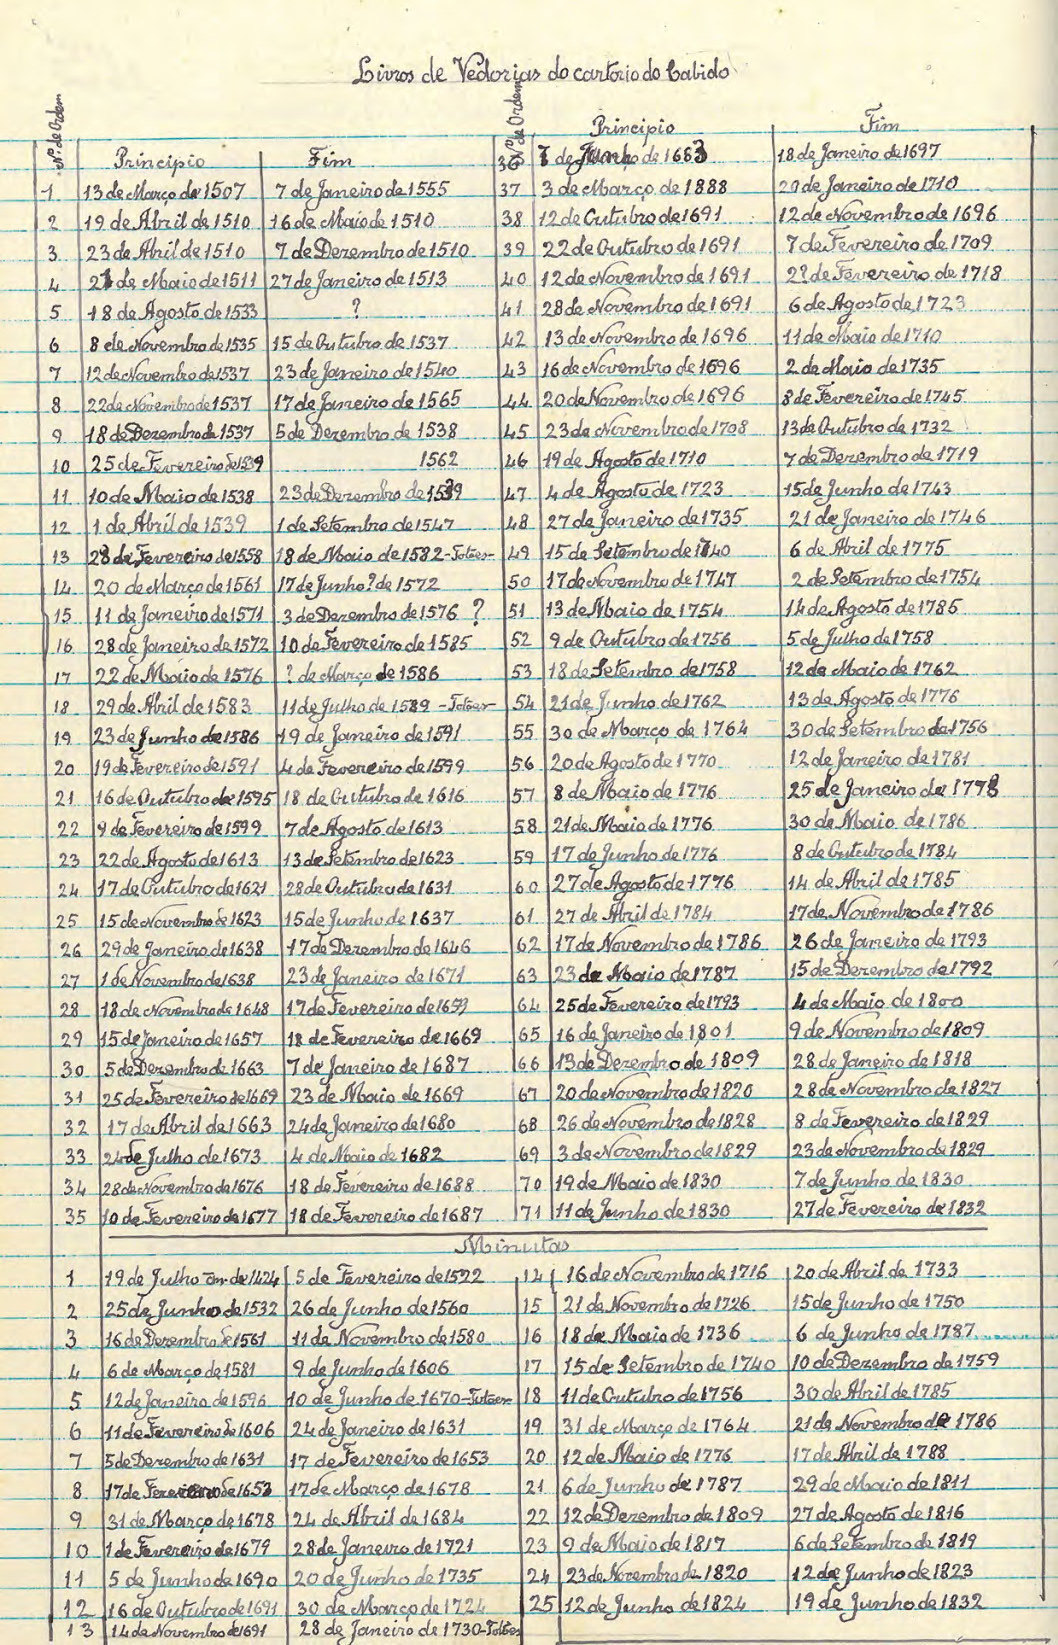 Livros de Vedorias do cartorio do Cabido
Nº de Ordem Principio Fim
1 13 de Março de 1507 7 de Janeiro de 1555
2 19 de Abril de 1510 16 de Maio de 1510
3 23 de Abril de 1510 7 de Dezembro de 1510
4 de Maio de 1511 27 de Janeiro de 1513
5 18 de Agosto de 1533 ?
6 8 de Novembro de 1535 15 de Outubro de 1537
7 12 de Novembro de 1537 23 de Janeiro de 1540
8 22 de Novembro de 1537 17 de Janeiro de 1565
9 18 de Dezembro de 1537 5 de Dezembro de 1538
10 25 de Fevereiro de 1539 1562
11 10 de Maio de 1538 23 de Dezembro de 1539
12 1 de Abril de 1539 1 de Setembro de 1547
13 28 de Fevereiro de 1558 18 de Maio de 1582
14 20 de Março de 1561 17 de Junho? de 1572
15 11 de Janeiro de 1571 3 de Dezembro de 1576 ?
16 28 de Janeiro de 1572 10 de Fevereiro de 1585
17 22 de Maio de 1576 ? de Março de 1586
18 29 de Abril de 1583 11 de Julho de 1589
19 23 de Junho de 1586 19 de Janeiro de 1591
20 19 de Fevereiro de 1591 4 de Fevereiro de 1599
21 16 de Outubro de 1595 18 de Outubro de 1616
22 9 de Fevereiro de 1599 7 de Agosto de 1613
23 22 de Agosto de 1613 13 de Setembro de 1623
24 17 de Outubro de 1621 28 de Outubro de 1631
25 15 de Novembro de 1623 15 de Junho de 1637
26 29 de Janeiro de 1638 17 de Dezembro de 1646
27 1 de Novembro de 1638 23 de Janeiro de 1671
28 18 de Novembro de 1648 17 de Fevereiro de 1659
29 15 de Janeiro de 1657 18 de Fevereiro de 1669
30 5 de Dezembro de 1663 7 de Janeiro de 1687
31 25 de Fevereiro de 1669 23 de Maio de 1669
32 17 de Abril de 1663 24 de Janeiro de 1680
33 24 de Julho de 1673 4 de Maio de 1682
34 28 de Novembro de 1676 18 de Fevereiro de 1688
35 10 de Fevereiro de 1677 18 de Fevereiro de 1687
Nº de Ordem Principio Fim
36 de Junho de 1683 18 de Janeiro de 1697
37 3 de Março de 1888 20 de Janeiro de 1710
38 12 de Outubro de 1691 12 de Novembro de 1696
39 22 de Outubro de 1691 7 de Fevereiro de 1709
40 12 de Novembro de 1691 2? de Fevereiro de 1718
41 28 de Novembro de 1691 6 de Agosto de 1723
42 13 de Novembro de 1696 11 de Maio de 1710
43 16 de Novembro de 1696 2 de Maio de 1735
44 20 de Novembro de 1696 8 de Fevereiro de 1745
45 23 de Novembro de 1708 13 de Outubro de 1732
46 19 de Agosto de 1710 7 de Dezembro de 1719
47 4 de Agosto de 1723 15 de Junho de 1743
48 27 de Janeiro de 1735 21 de Janeiro de 1746
49 15 de Setembro de 1740 6 de Abril de 1775
50 17 de Novembro de 1747 2 de Setembro de 1754
51 13 de Maio de 1754 14 de Agosto de 1785
52 9 de Outubro de 1756 5 de Julho de 1758
53 18 de Setembro de 1758 12 de Maio de 1762
54 21 de Junho de 1762 13 de Agosto de 1776
55 30 de Março de 1764 30 de Setembro de 1756
56 20 de Agosto de 1770 12 de Janeiro de 1781
57 8 de Maio de 1776 25 de Janeiro de 1778
58 21 de Maio de 1776 30 de Maio de 1786
59 17 de Junho de 1776 8 de Outubro de 1784
60 27 de Agosto de 1776 14 de Abril de 1785
61 27 de Abril de 1784 17 de Novembro de 1786
62 17 de Novembro de 1786 26 de Janeiro de 1793
63 23 de Maio de 1787 15 de Dezembro de 1792
64 25 de Fevereiro de 1793 4 de Maio de 1800
65 16 de Janeiro de 1801 9 de Novembro de 1809
66 13 de Dezembro de 1809 28 de Janeiro de 1818
67 20 de Novembro de 1820 28 de Novembro de 1827
68 26 de Novembro de 1828 8 de Fevereiro de 1829
69 3 de Novembro de 1829 23 de Novembro de 1829
70 19 de Maio de 1830 7 de Junho de 1830
71 11 de Junho de 1830 27 de Fevereiro de 1832
Minutas
1 19 de Julho de 1424 5 de Fevereiro de 1522
2 25 de Junho de 1532 26 de Junho de 1560
3 16 de Dezembro de 1561 11 de Novembro de 1580
4 6 de Março de 1581 9 de Junho de 1606
5 12 de Janeiro de 1596 10 de Junho de 1670
6 11 de Fevereiro de 1606 24 de Janeiro de 1631
7 5 de Dezembro de 1631 17 de Fevereiro de 1653
8 17 de Fevereiro de 1653 17 de Março de 1678
9 31 de Março de 1678 24 de Abril de 1684
10 1 de Fevereiro de 1679 28 de Janeiro de 1721
11 5 de Junho de 1690 20 de Junho de 1735
12 16 de Outubro de 1691 30 de Março de 1724
13 14 de Novembro de 1691 28 de Janeiro de 1730
14 16 de Novembro de 1716 20 de Abril de 1733
15 21 de Novembro de 1726 15 de Junho de 1750
16 18 de Maio de 1736 6 de Junho de 1787
17 15 de Setembro de 1740 10 de Dezembro de 1759
18 11 de Outubro de 1756 30 de Abril de 1785
19 31 de Março de 1764 21 de Novembro de 1786
20 12 de Maio de 1776 17 de Abril de 1788
21 6 de Junho de 1787 29 de Maio de 1811
22 12 de Dezembro de 1809 27 de Agosto de 1816
23 9 de Maio de 1817 6 de Setembro de 1819
24 23 de Novembro de 1820 12 de Junho de 1823
25 12 de Junho de 1824 19 de Junho de 1832